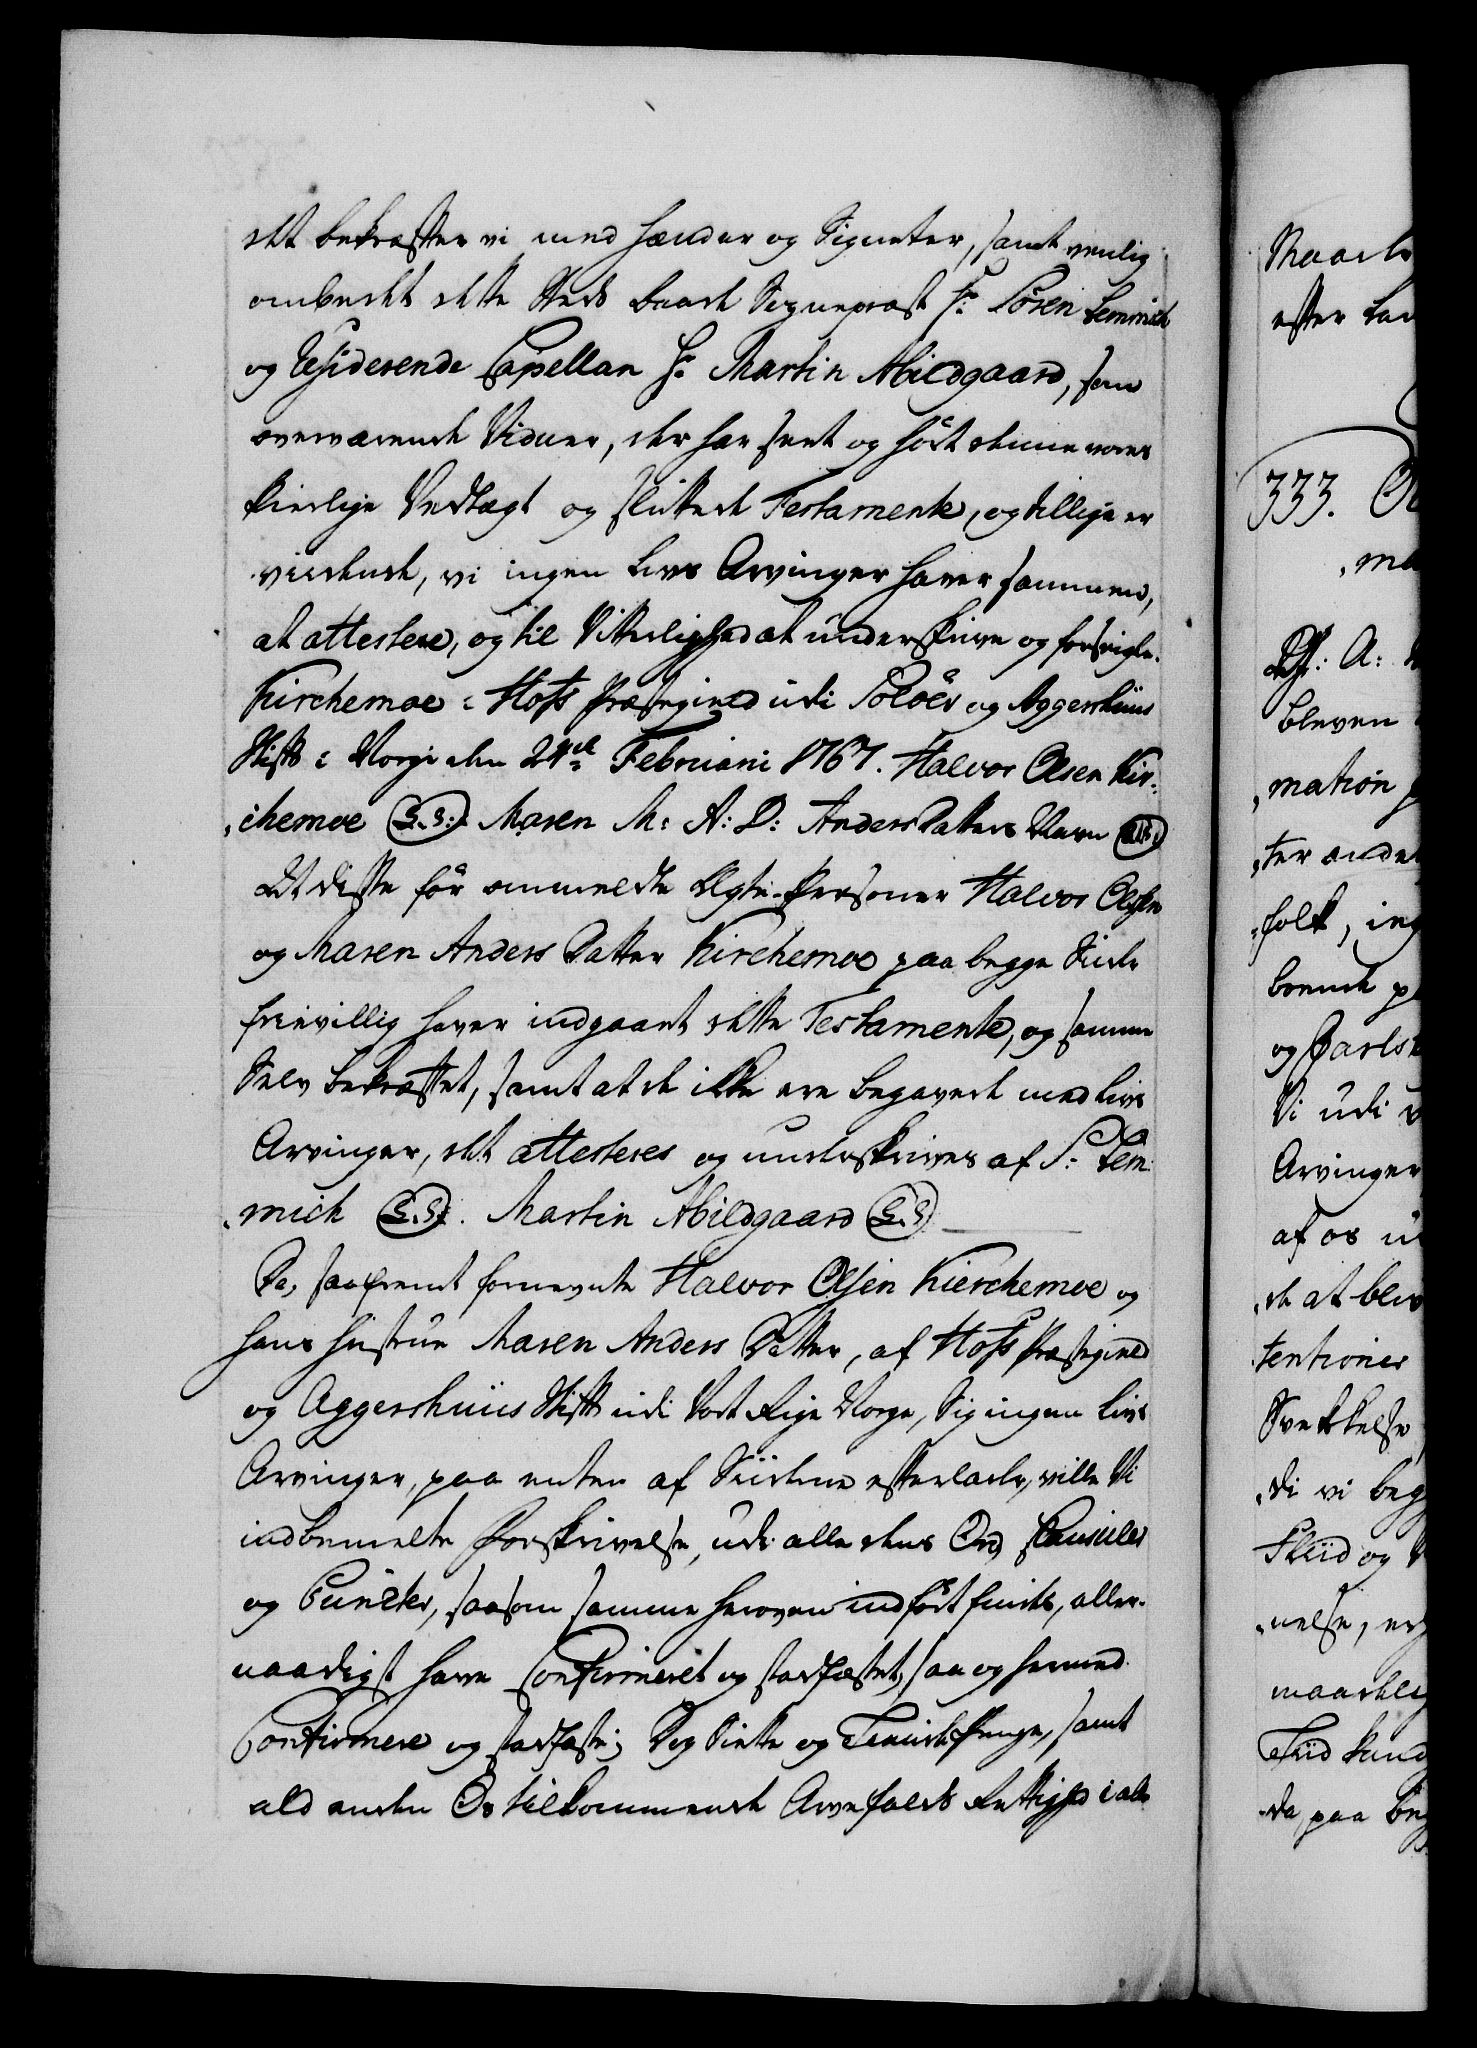 det bekræfter vi med Hænder og Signeter, samt venlig
ombedet dette Steds baade Sogneprest Hr: Sören Lemmich
og Residerende Capellan Hr: Martin Abildgaard, som
overværende Vidner, der har seet og hört denne vores
kierlige Vedtægt og sluttede Testamente, og tillige er
vidende, vi ingen Livs Arvinger haver sammen,
at attestere, og til Vitterlighed at underskrive og forseigle.
Kirchemoe i Hofs Præstegield udi Solöer og Aggershuus
Stift i Norge den 24de Februarii 1767. Halvor Olsen Kir-
chemoe (L.S.) Maren M: A: D: Anders Datters Navn (L.S.)
At disse för anmeldte Ægte-Personer Halvor Olsen
og Maren Anders Datter Kirchemoe paa begge Sider
frievillig haver indgaaet dette Testamente, og samme
Selv bekræftet, samt at de ikke ere begavede med Livs
Arvinger, det attesteres og underskrives af S: Lem-
mich (L.S.). Martin Abildgaard (L.S.)
Da, saafremt fornevnte Halvor Olsen Kierchemoe og
hans Hustrue Maren Anders Datter, af Hofs Præstegield
og Aggershuus Stift udi Vort Rige Norge, Sig ingen Livs
Arvinger, paa enten af Siiderne efterlade, ville Vi
indbemelte Forskrivelse, udi alle dens Ord, Clausuler
og Puncter, saasom samme heroven indfört findes, aller-
naadigst have Confirmeret og stadfæstet, saa og hermed
Confirmere og stadfæste; Dog Siette og Tiende Penge, samt
ald anden Os tilkommende Arvefalds Rettighed i alle
Maade
efter Lov
333. 
ma
bleven
mation
ter ande
folk, ing
boende p
og Jarls
Vi udi
Arvinger
af os
de at bliv
tentioner
Svekkelse
di vi beg
Skiid og
nelse, er
Tiid
da, paa beg